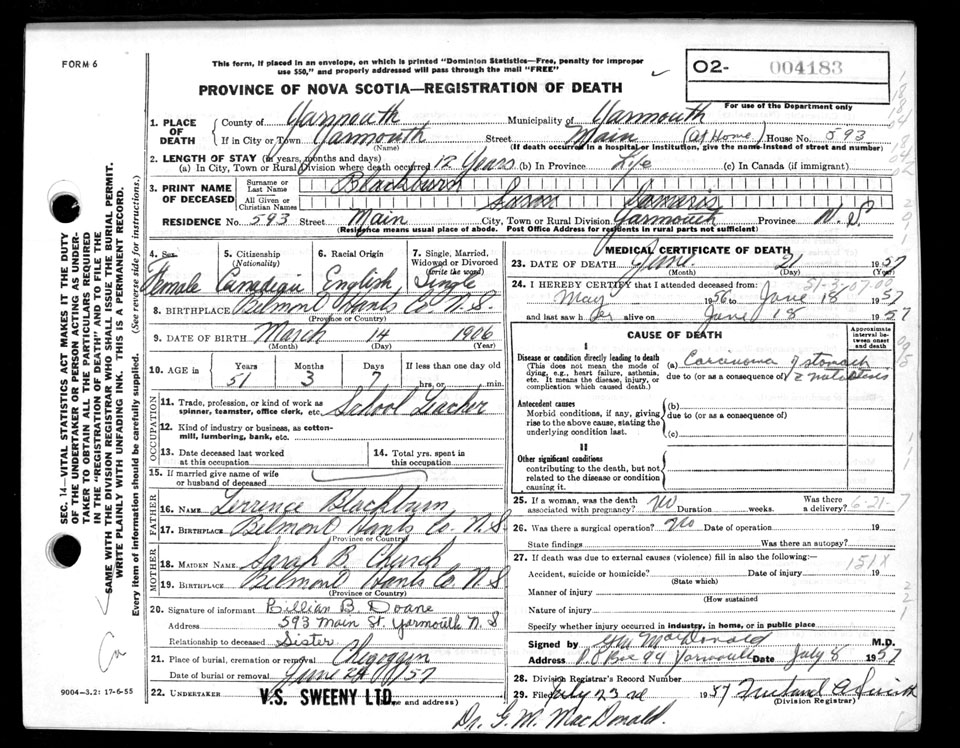 FORM 6
This form, if placed in an envelope, on which is printed "Dominion Statistics—Free, penalty for improper
use $50," and properly addressed will pass through the mail "FREE"
PROVINCE OF NOVA SCOTIA—REGISTRATION OF DEATH
O2- 004183
For use of the Department only
1. PLACE OF DEATH
County of Yarmouth Municipality of Yarmouth
If in City or Town Yarmouth Street Main (At Home) House No. 593
(Name) (If death occurred in a hospital or institution, give the name instead of street and number)
2. LENGTH OF STAY (in years, months and days)
(a) In City, Town or Rural Division where death occurred 12 Years (b) In Province Life (c) In Canada (if immigrant)
3. PRINT NAME OF DECEASED
Surname or Last Name Blackburn
All Given or Christian Names Damaris
RESIDENCE No. 593 Street Main City, Town or Rural Division Yarmouth Province N. S
(Residence means usual place of abode. Post Office Address for residents in rural parts not sufficient)
4. Sex Female
5. Citizenship (Nationality) Canadian
6. Racial Origin English
7. Single, Married, Widowed or Divorced (write the word) Single
8. BIRTHPLACE Belmont Hants Co. N.S.
(Province or Country)
9. DATE OF BIRTH March 14 1906
(Month) (Day) (Year)
10. AGE in Years 51 Months 3 Days 7 If less than one day old
hrs. or min.
OCCUPATION
11. Trade, profession, or kind of work as spinner, teamster, office clerk, etc. School Teacher
12. Kind of industry or business, as cotton-mill, lumbering, bank, etc.
13. Date deceased last worked at this occupation
14. Total yrs. spent in this occupation
15. If married give name of wife or husband of deceased
FATHER
16. NAME Terrence Blackburn
17. BIRTHPLACE Belmont Hants Co. N. S
(Province or Country)
MOTHER
18. MAIDEN NAME Sarah B. Church
19. BIRTHPLACE Belmont Hants Co. N. S
(Province or Country)
20. Signature of informant Lillian B. Doane
Address 593 Main St. Yarmouth N. S
Relationship to deceased Sister
21. Place of burial, cremation or removal Chegoggin
Date of burial or removal June 24 1957
22. UNDERTAKER V.S. SWEENY LTD.
9004—3.2: 17-6-55
MEDICAL CERTIFICATE OF DEATH
23. DATE OF DEATH June 21 1957
(Month) (Day) (Year)
24. I HEREBY CERTIFY that I attended deceased from:
May 1956 to June 18 1957
and last saw her alive on June 18 1957
CAUSE OF DEATH
Approximate interval between onset and death
I
Disease or condition directly leading to death
(This does not mean the mode of dying, e.g., heart failure, asthenia, etc. It means the disease, injury, or complication which caused death.)
(a) Carcinoma of stomach
due to (or as a consequence of)
Antecedent causes
Morbid conditions, if any, giving rise to the above cause, stating the underlying condition last.
(b)
due to (or as a consequence of)
(c)
II
Other significant conditions
contributing to the death, but not related to the disease or condition causing it.
25. If a woman, was the death associated with pregnancy? No Duration weeks. Was there a delivery? 6-21-7
26. Was there a surgical operation? No Date of operation 19
State findings Was there an autopsy?
27. If death was due to external causes (violence) fill in also the following:— 151X
Accident, suicide or homicide? Date of injury 19
(State which)
Manner of injury
(How sustained
Nature of injury
Specify whether injury occurred in industry, in home, or in public place
Signed by GW MacDonald M.D.
Address P.O Box 94 Yarmouth Date July 8 1957
28. Division Registrar's Record Number
29. Filed July 23rd 1957
(Division Registrar)
Dr. G. W. MacDonald.
SEC. 14—VITAL STATISTICS ACT MAKES IT THE DUTY
OF THE UNDERTAKER OR PERSON ACTING AS UNDER-
TAKER TO OBTAIN ALL THE PARTICULARS REQUIRED
IN THE "REGISTRATION OF DEATH" AND TO FILE THE
SAME WITH THE DIVISION REGISTRAR WHO SHALL ISSUE THE BURIAL PERMIT.
WRITE PLAINLY WITH UNFADING INK. THIS IS A PERMANENT RECORD.
Every item of information should be carefully supplied. (See reverse side for instructions.)